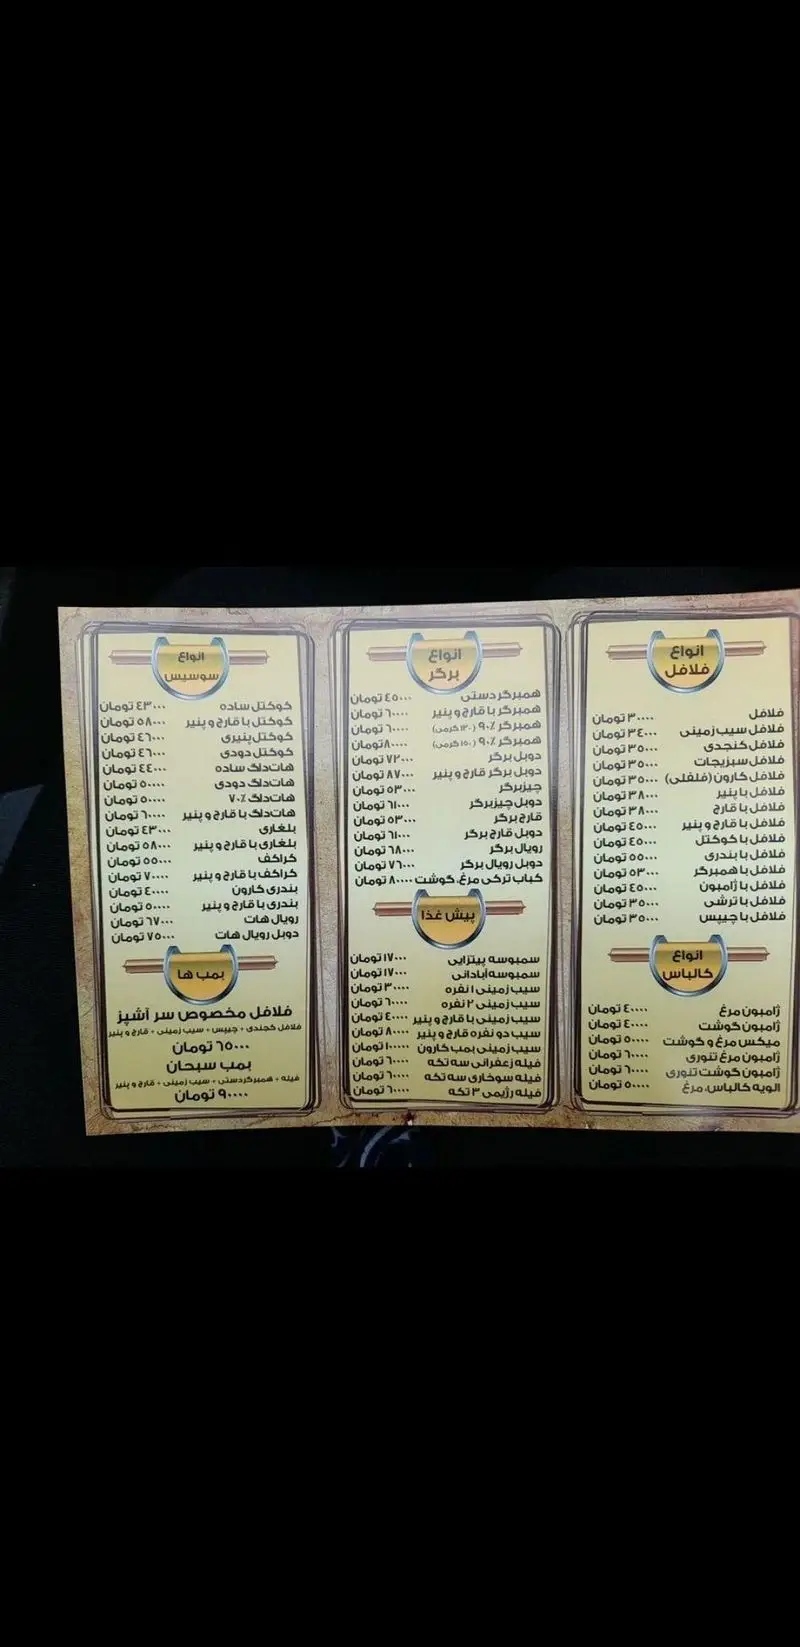 انواع
فلافل
فلافل ۳۰۰۰۰ تومان
فلافل سیب زمینی ۳٤۰۰۰ تومان
فلافل کنجدی ۳٥۰۰۰ تومان
فلافل سبزیجات ۳٥۰۰۰ تومان
فلافل کارون (فلفلی) ۳٥۰۰۰ تومان
فلافل با پنیر ۳۸۰۰۰ تومان
فلافل با قارچ ۳۸۰۰۰ تومان
فلافل با قارچ و پنیر ٤٥۰۰۰ تومان
فلافل با کوکتل ٤٥۰۰۰ تومان
فلافل با بندری ٥٥۰۰۰ تومان
فلافل با همبرگر ٥۳۰۰۰ تومان
فلافل با ژامبون ٤٥۰۰۰ تومان
فلافل با ترشی ۳٥۰۰۰ تومان
فلافل با چیپس ۳٥۰۰۰ تومان
انواع
کالباس
ژامبون مرغ ٤۰۰۰۰ تومان
ژامبون گوشت ٤۰۰۰۰ تومان
میکس مرغ و گوشت ٥۰۰۰۰ تومان
ژامبون مرغ تنوری ٦۰۰۰۰ تومان
ژامبون گوشت تنوری ٦۰۰۰۰ تومان
الویه کالباس، مرغ ٥۰۰۰۰ تومان
انواع
برگر
همبرگر دستی ٤٥۰۰۰ تومان
همبرگر با قارچ و پنیر ٦۰۰۰۰ تومان
همبرگر ۹۰٪ (۱۲۰ گرمی) ٦۰۰۰۰ تومان
همبرگر ۹۰٪ (۱٥۰ گرمی) ۸۰۰۰۰ تومان
دوبل برگر ۷۲۰۰۰ تومان
دوبل برگر قارچ و پنیر ۸۷۰۰۰ تومان
چیزبرگر ٥۳۰۰۰ تومان
دوبل چیزبرگر ٦۱۰۰۰ تومان
قارچ برگر ٥۳۰۰۰ تومان
دوبل قارچ برگر ٦۱۰۰۰ تومان
رویال برگر ٦۸۰۰۰ تومان
دوبل رویال برگر ۷٦۰۰۰ تومان
کباب ترکی مرغ، گوشت ۸۰۰۰۰ تومان
پیش غذا
سمبوسه پیتزایی ۱۷۰۰۰ تومان
سمبوسه آبادانی ۱۷۰۰۰ تومان
سیب زمینی ۱ نفره ۳۰۰۰۰ تومان
سیب زمینی ۲ نفره ٦۰۰۰۰ تومان
سیب زمینی با قارچ و پنیر ٤۰۰۰۰ تومان
سیب دو نفره قارچ و پنیر ۸۰۰۰۰ تومان
سیب زمینی بمب کارون ۱۰۰۰۰۰ تومان
فیله زعفرانی سه تکه ٦۰۰۰۰ تومان
فیله سوخاری سه تکه ٦۰۰۰۰ تومان
فیله رژیمی ۳ تکه ٦۰۰۰۰ تومان
انواع
سوسیس
کوکتل ساده ٤۳۰۰۰ تومان
کوکتل با قارچ و پنیر ٥۸۰۰۰ تومان
کوکتل پنیری ٤٦۰۰۰ تومان
کوکتل دودی ٤٦۰۰۰ تومان
هات‌داگ ساده ٤٤۰۰۰ تومان
هات‌داگ دودی ٥۰۰۰۰ تومان
هات‌داگ ۷۰٪ ٥۰۰۰۰ تومان
هات‌داگ با قارچ و پنیر ٦۰۰۰۰ تومان
بلغاری ٤۳۰۰۰ تومان
بلغاری با قارچ و پنیر ٥۸۰۰۰ تومان
کراکف ٥٥۰۰۰ تومان
کراکف با قارچ و پنیر ۷۰۰۰۰ تومان
بندری کارون ٤۰۰۰۰ تومان
بندری با قارچ و پنیر ٥۰۰۰۰ تومان
رویال هات ٦۷۰۰۰ تومان
دوبل رویال هات ۷٥۰۰۰ تومان
بمب ها
فلافل مخصوص سر آشپز
فلافل کنجدی + چیپس + سیب زمینی + قارچ و پنیر
٦٥۰۰۰ تومان
بمب سبحان
فیله + همبرگر دستی + سیب زمینی + قارچ و پنیر
۹۰۰۰۰ تومان